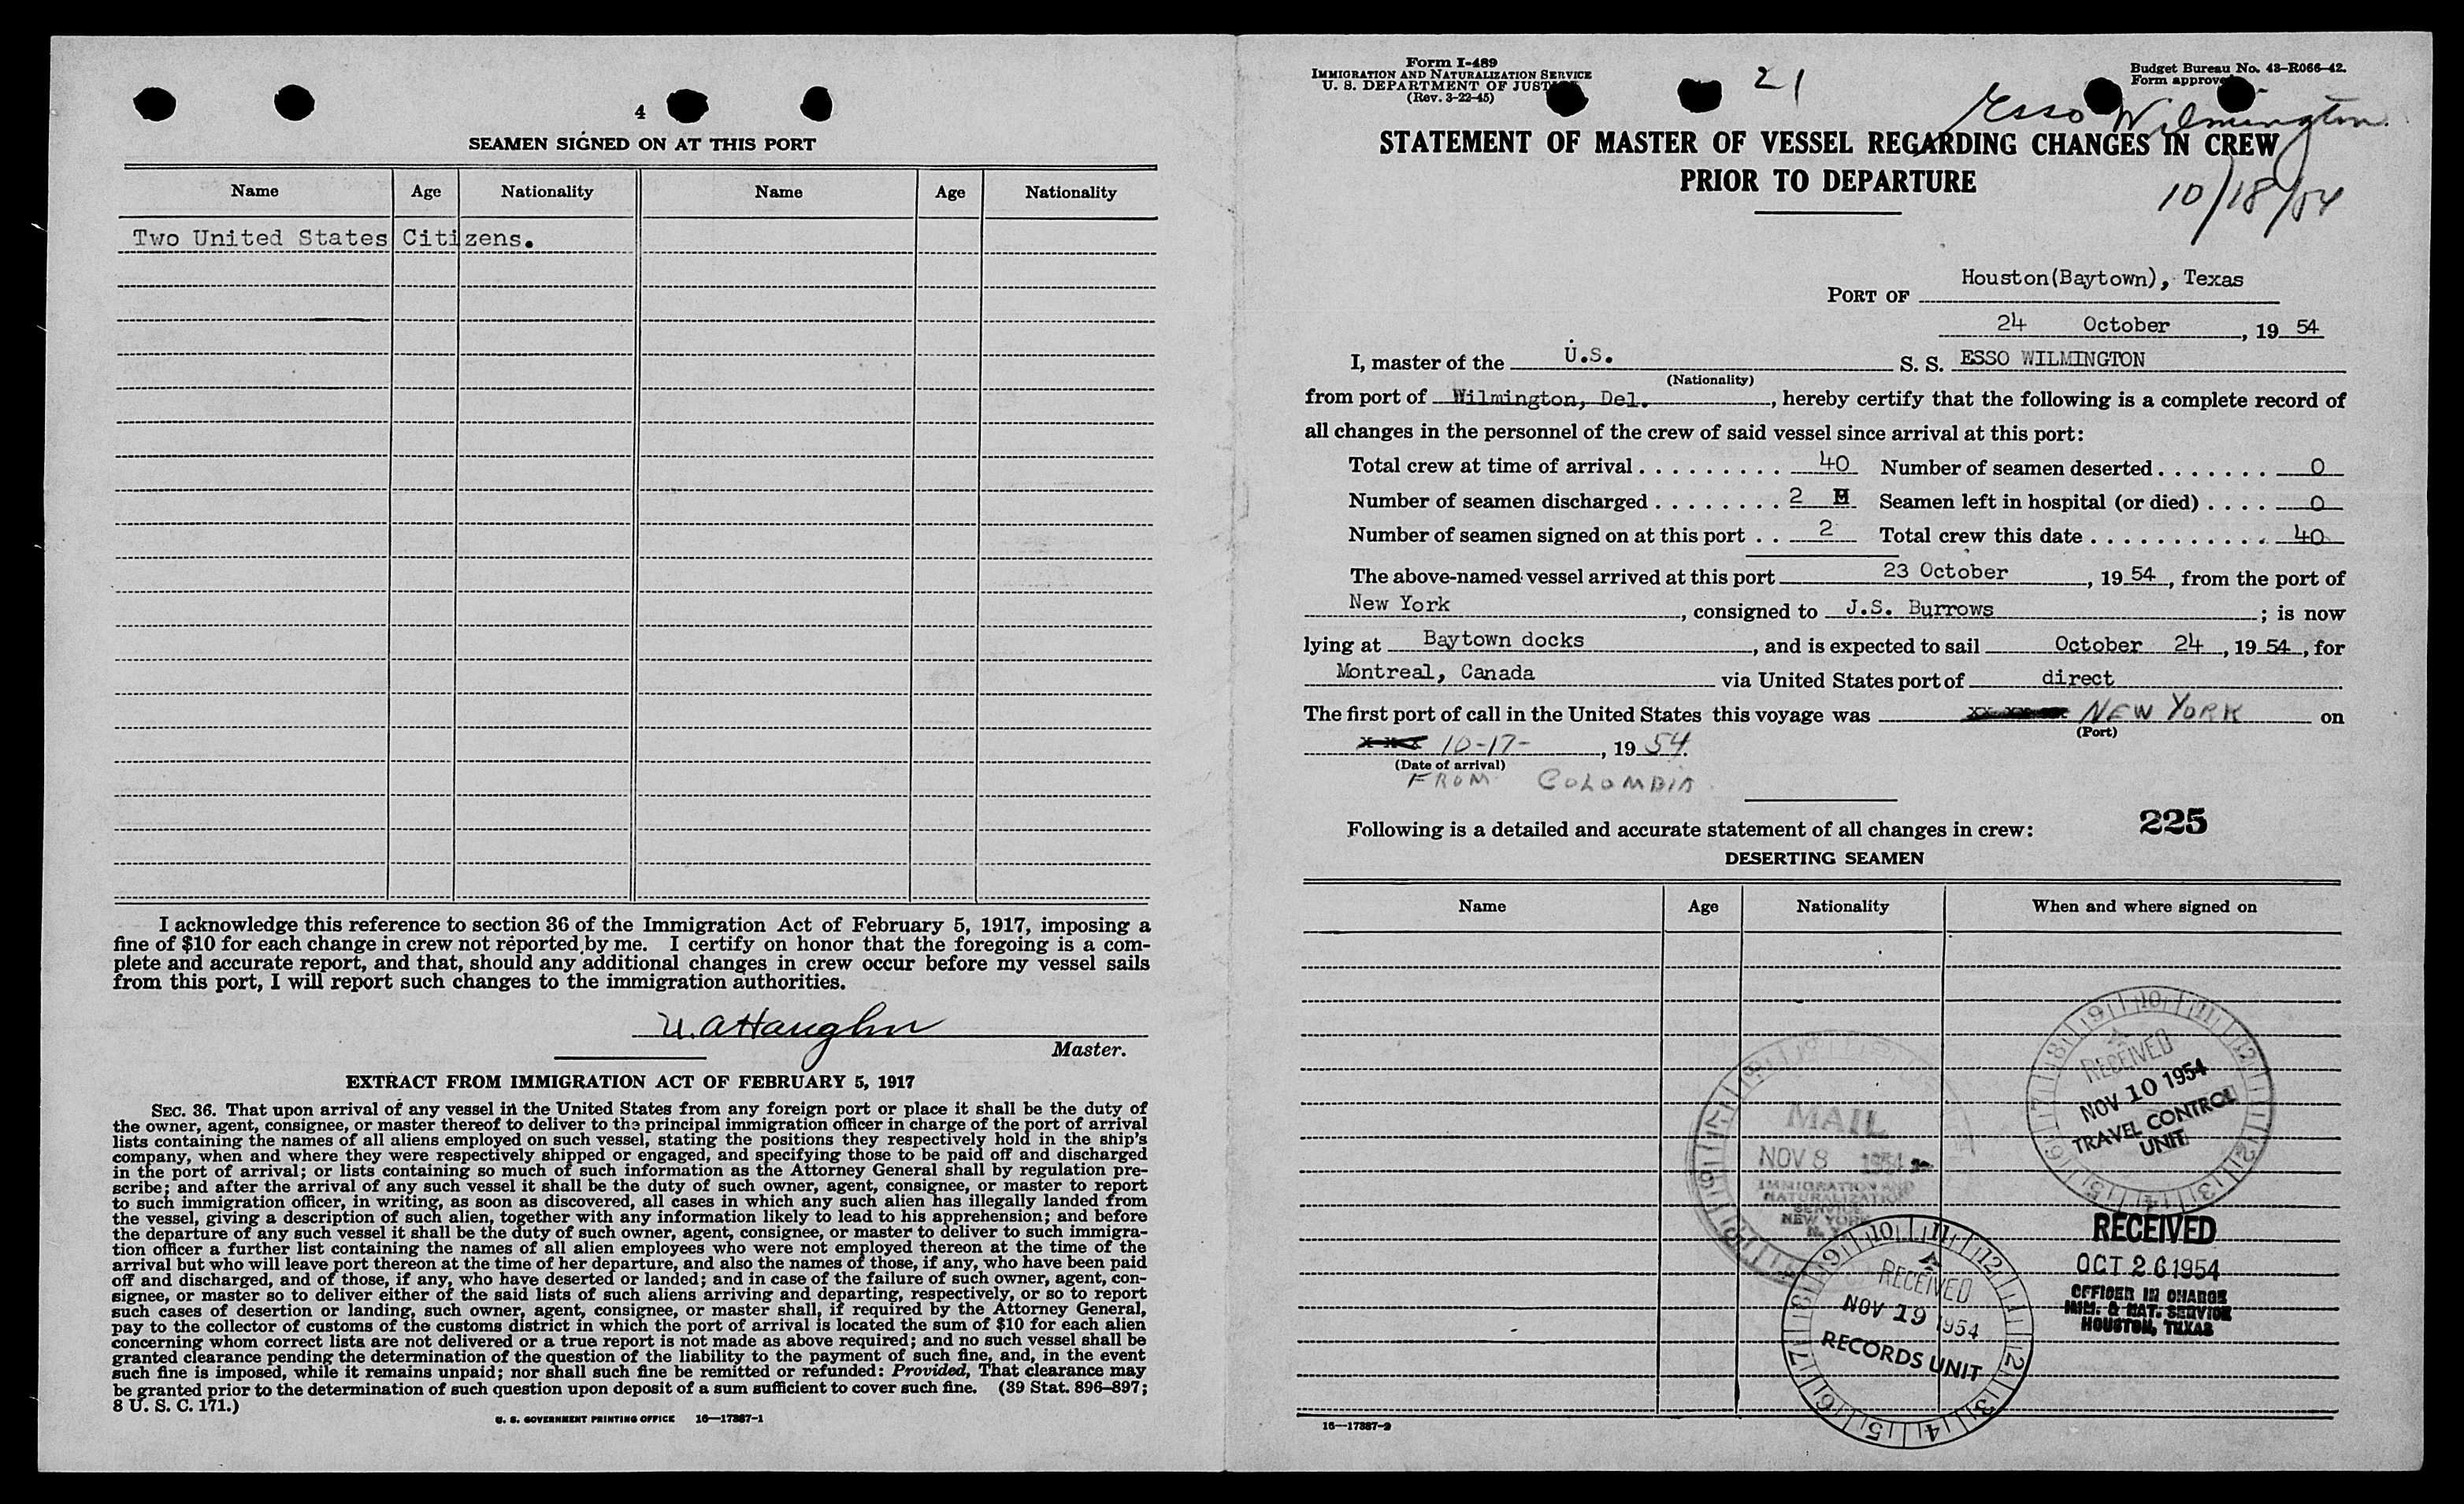 4
SEAMEN SIGNED ON AT THIS PORT
Name Age Nationality Name Age Nationality
Two United States Citizens.
I acknowledge this reference to section 36 of the Immigration Act of February 5, 1917, imposing a
fine of $10 for each change in crew not reported by me. I certify on honor that the foregoing is a com-
plete and accurate report, and that, should any additional changes in crew occur before my vessel sails
from this port, I will report such changes to the immigration authorities.
Master.
EXTRACT FROM IMMIGRATION ACT OF FEBRUARY 5, 1917
SEC. 36. That upon arrival of any vessel in the United States from any foreign port or place it shall be the duty of
the owner, agent, consignee, or master thereof to deliver to the principal immigration officer in charge of the port of arrival
lists containing the names of all aliens employed on such vessel, stating the positions they respectively hold in the ship's
company, when and where they were respectively shipped or engaged, and specifying those to be paid off and discharged
in the port of arrival; or lists containing so much of such information as the Attorney General shall by regulation pre-
scribe; and after the arrival of any such vessel it shall be the duty of such owner, agent, consignee, or master to report
to such immigration officer, in writing, as soon as discovered, all cases in which any such alien has illegally landed from
the vessel, giving a description of such alien, together with any information likely to lead to his apprehension; and before
the departure of any such vessel it shall be the duty of such owner, agent, consignee, or master to deliver to such immigra-
tion officer a further list containing the names of all alien employees who were not employed thereon at the time of the
arrival but who will leave port thereon at the time of her departure, and also the names of those, if any, who have been paid
off and discharged, and of those, if any, who have deserted or landed; and in case of the failure of such owner, agent, con-
signee, or master so to deliver either of the said lists of such aliens arriving and departing, respectively, or so to report
such cases of desertion or landing, such owner, agent, consignee, or master shall, if required by the Attorney General,
pay to the collector of customs of the customs district in which the port of arrival is located the sum of $10 for each alien
concerning whom correct lists are not delivered or a true report is not made as above required; and no such vessel shall be
granted clearance pending the determination of the question of the liability to the payment of such fine, and, in the event
such fine is imposed, while it remains unpaid; nor shall such fine be remitted or refunded: Provided, That clearance may
be granted prior to the determination of such question upon deposit of a sum sufficient to cover such fine. (39 Stat. 896–897;
8 U. S. C. 171.)
U. S. GOVERNMENT PRINTING OFFICE 16—17387-1
Form I-489
IMMIGRATION AND NATURALIZATION SERVICE
U. S. DEPARTMENT OF JUST
(Rev. 3-22-45)
21
Budget Bureau No. 43-R066-42.
Form approve
Esso Wilmington
10/18/54
STATEMENT OF MASTER OF VESSEL REGARDING CHANGES IN CREW
PRIOR TO DEPARTURE
PORT OF Houston(Baytown), Texas
24 October, 19 54
I, master of the U.S. S. S. ESSO WILMINGTON
(Nationality)
from port of Wilmington, Del., hereby certify that the following is a complete record of
all changes in the personnel of the crew of said vessel since arrival at this port:
Total crew at time of arrival . . . . . . . . . 40 Number of seamen deserted . . . . . . . 0
Number of seamen discharged . . . . . . . . 2 Seamen left in hospital (or died) . . . . 0
Number of seamen signed on at this port . . 2 Total crew this date . . . . . . . . . . . . 40
The above-named vessel arrived at this port 23 October, 19 54, from the port of
New York, consigned to J.S. Burrows; is now
lying at Baytown docks, and is expected to sail October 24, 19 54, for
Montreal, Canada via United States port of direct
The first port of call in the United States this voyage was NEW YORK on
(Port)
10-17-, 19 54
(Date of arrival)
FROM COLOMBIA
Following is a detailed and accurate statement of all changes in crew:
225
DESERTING SEAMEN
Name Age Nationality When and where signed on
RECEIVED
NOV 10 1954
TRAVEL CONTROL
UNIT
MAIL
NOV 8 1954
IMMIGRATION AND
NATURALIZATION
SERVICE
NEW YORK
N. Y.
RECEIVED
OCT 26 1954
OFFICER IN CHARGE
IMM. & NAT. SERVICE
HOUSTON, TEXAS
RECEIVED
NOV 19 1954
RECORDS UNIT
16—17387-2